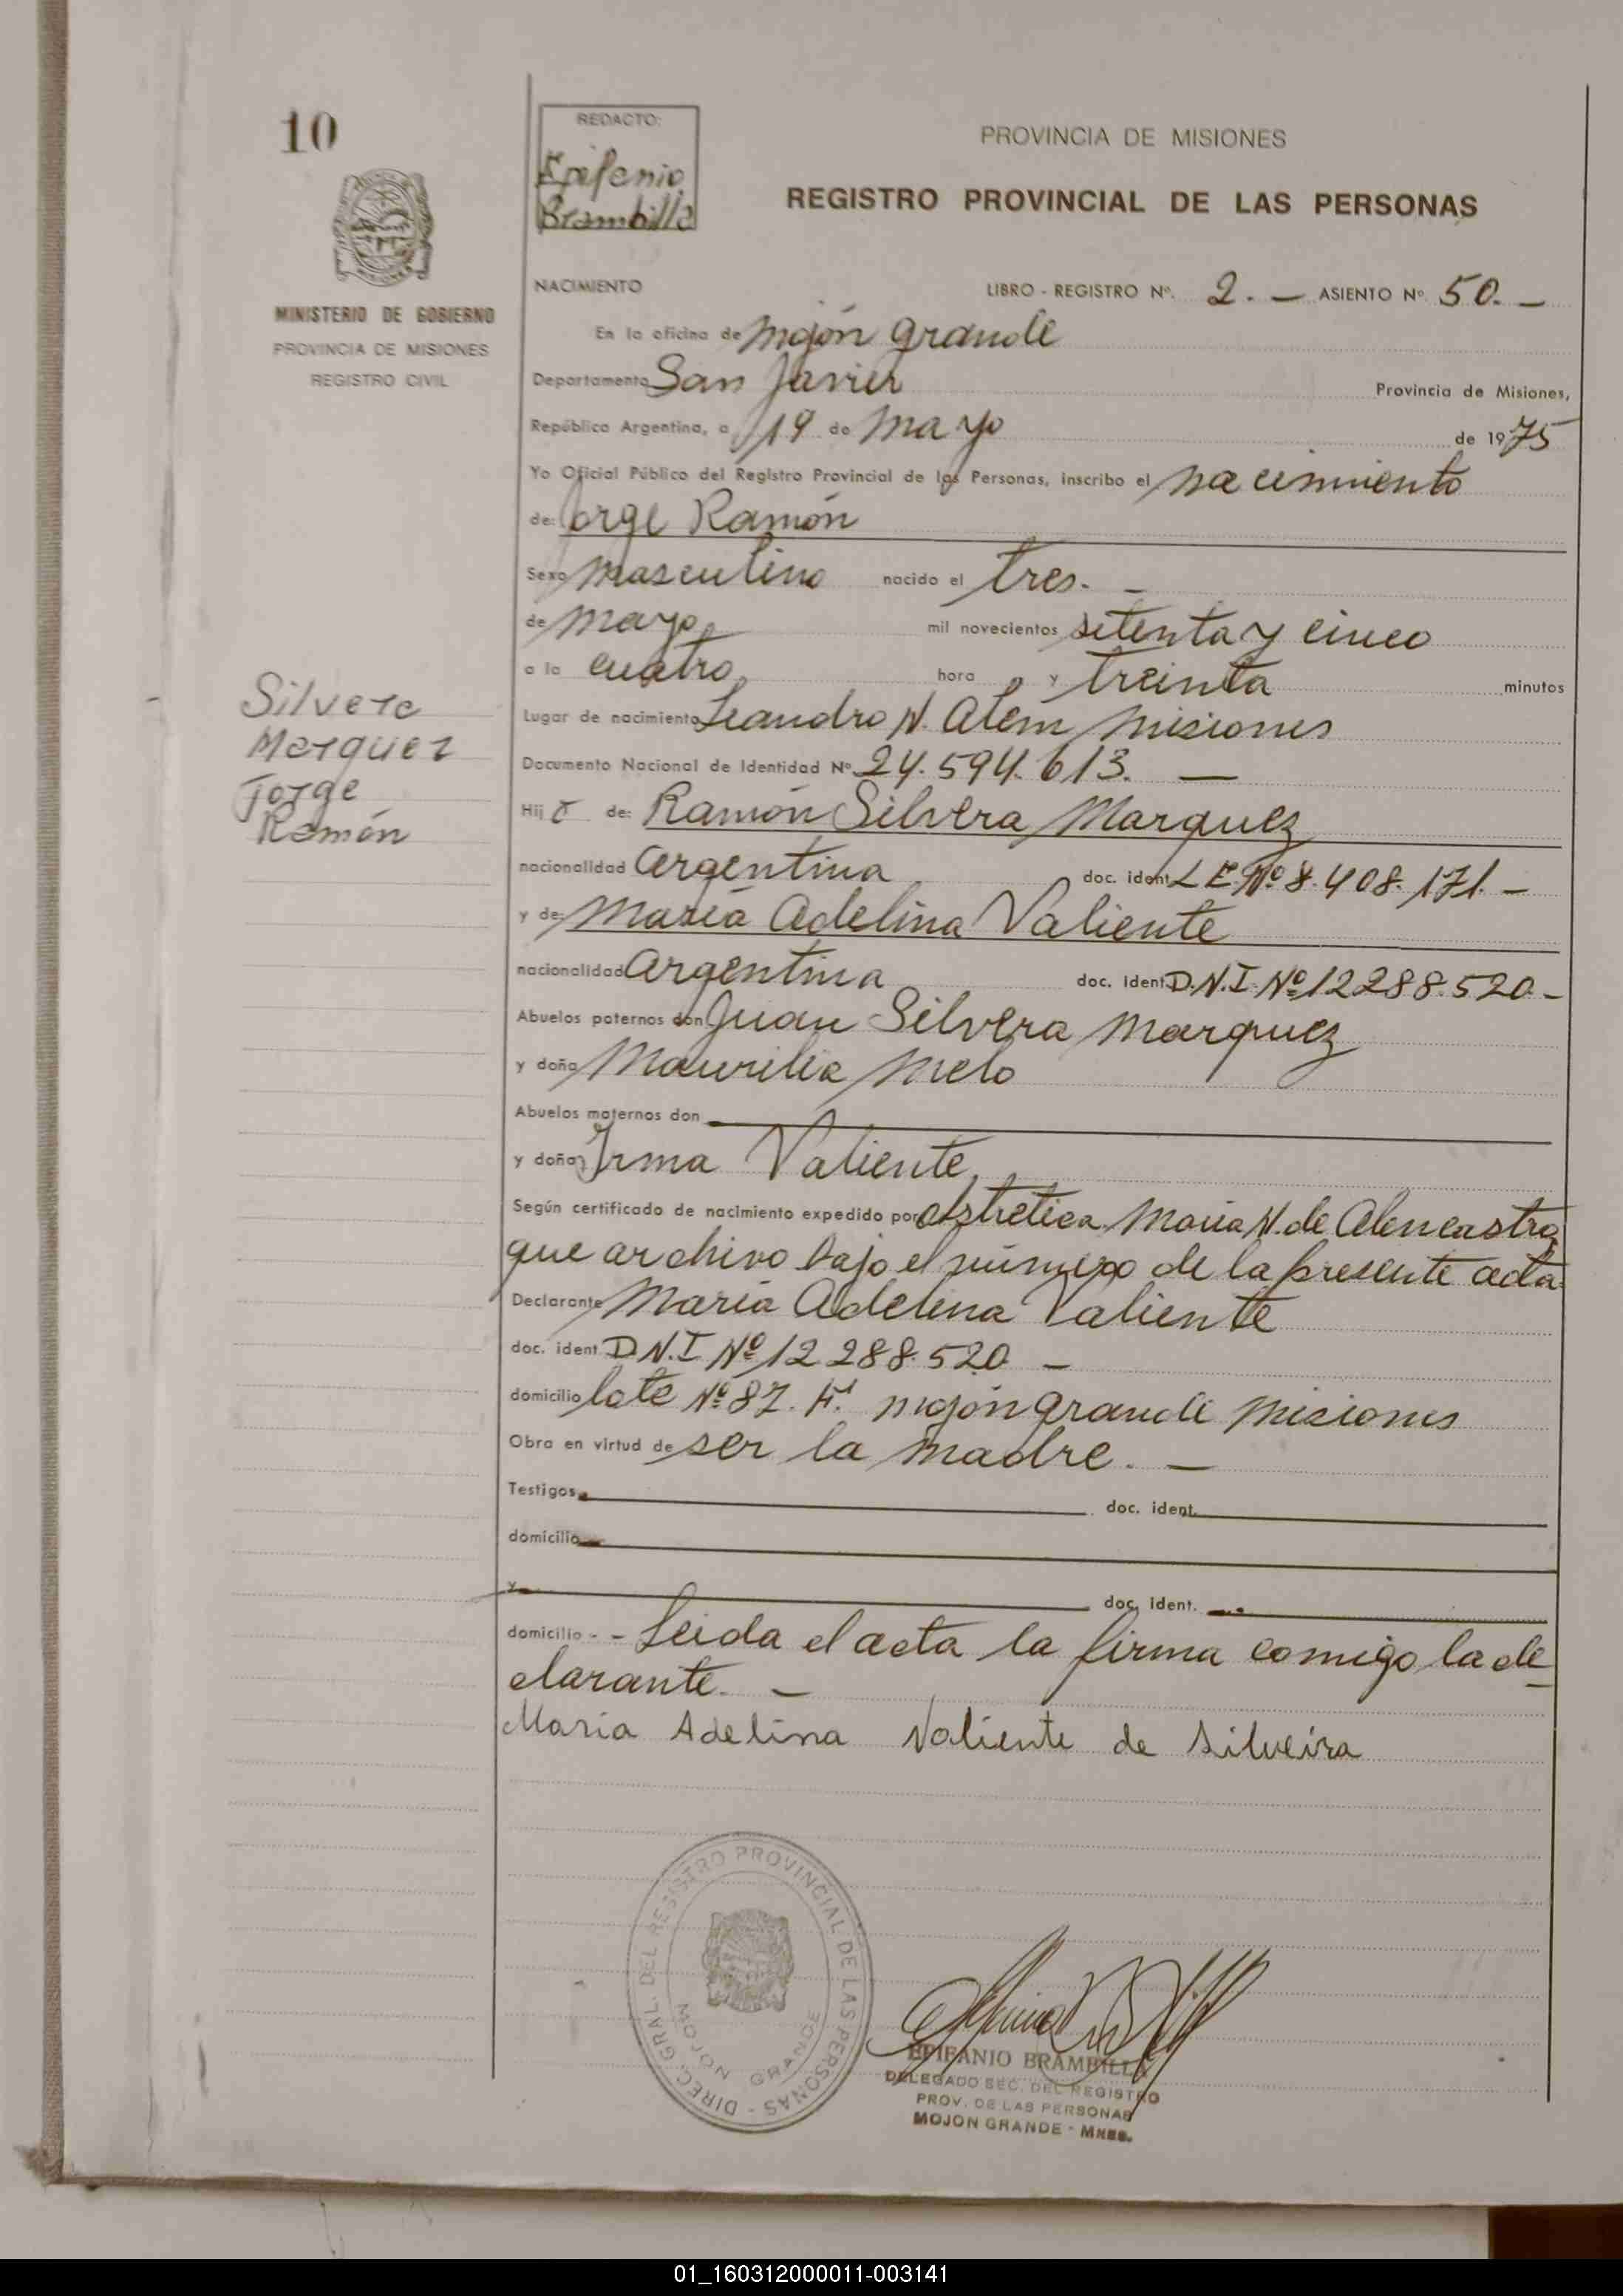 10
REDACTO:
Epifanio
Brambilla
PROVINCIA DE MISIONES
REGISTRO PROVINCIAL DE LAS PERSONAS
MINISTERIO DE GOBIERNO
PROVINCIA DE MISIONES
REGISTRO CIVIL
NACIMIENTO LIBRO - REGISTRO Nº. 2. — ASIENTO Nº 50. —
En la oficina de Mojón Grande
Departamento San Javier Provincia de Misiones,
República Argentina, a 19 de Mayo de 1975
Yo Oficial Público del Registro Provincial de las Personas, inscribo el nacimiento
de: Jorge Ramón
Sexo Masculino nacido el tres. —
de Mayo mil novecientos setenta y cinco
a la cuatro hora y treinta minutos
Silvera
Marquez
Jorge
Ramón
Lugar de nacimiento Leandro N. Alem Misiones
Documento Nacional de Identidad Nº 24.594.613. —
Hijo de: Ramón Silvera Marquez
nacionalidad Argentina doc. ident. L E. Nº 8.408.171. —
y de: María Adelina Valiente
nacionalidad Argentina doc. ident. D.N.I. Nº 12288.520. —
Abuelos paternos don Juan Silvera Marquez
y doña Maurilia Melo
Abuelos maternos don
y doña Irma Valiente
Según certificado de nacimiento expedido por María N. de Alencastro
que archivo bajo el número de la presente acta
Declarante María Adelina Valiente
doc. ident. D.N.I. Nº 12288.520 —
domicilio lote Nº 87. Mojón Grande Misiones
Obra en virtud de ser la madre. —
Testigos doc. ident.
domicilio
y doc. ident.
domicilio - - Leida el acta la firma comigo la de
clarante. —
María Adelina Valiente de Silveira
DIREC. GRAL. DEL REGISTRO PROVINCIAL DE LAS PERSONAS -
MOJON GRANDE
EPIFANIO BRAMBILLA
DELEGADO SEC. DEL REGISTRO
PROV. DE LAS PERSONAS
MOJON GRANDE - MNES.
01_160312000011-003141